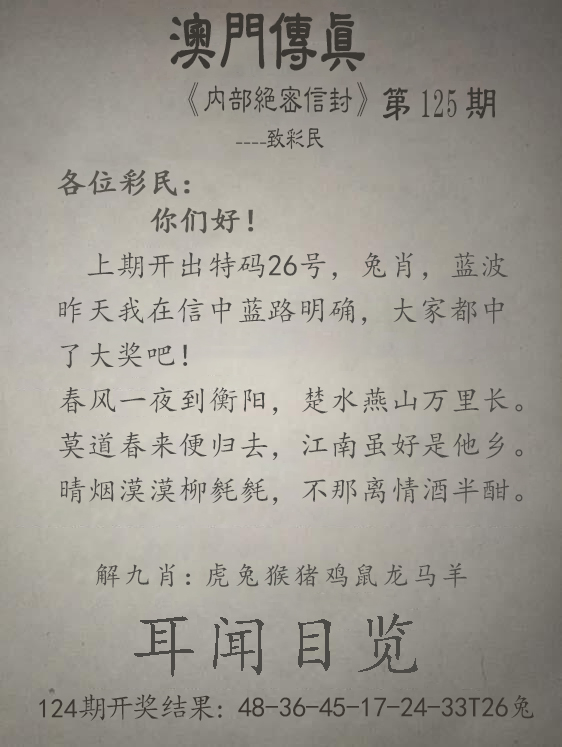 澳門傳眞
《内部絕密信封》第125期
----致彩民
各位彩民:
你们好!
上期开出特码26号，兔肖，蓝波
昨天我在信中蓝路明确，大家都中
了大奖吧!
春风一夜到衡阳，楚水燕山万里长。
莫道春来便归去，江南虽好是他乡。
晴烟漠漠柳毵毵，不那离情酒半酣。
解九肖:虎兔猴猪鸡鼠龙马羊
耳闻目览
124期开奖结果: 48-36-45-17-24-33T26兔